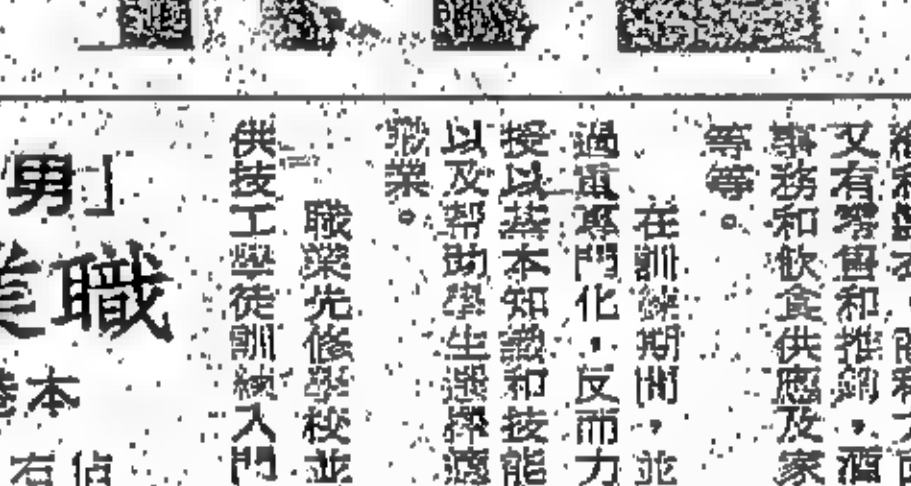 又有零售和推銷，酒
事務和飲食供應及家
等等。
在訓練期間，並
過重專門化，反而力
授以基本知識和技能
以及帮助學生選擇適
職業。
職業先修學校並
供技工學徒訓練入門
「男
職業
本港
佔
有